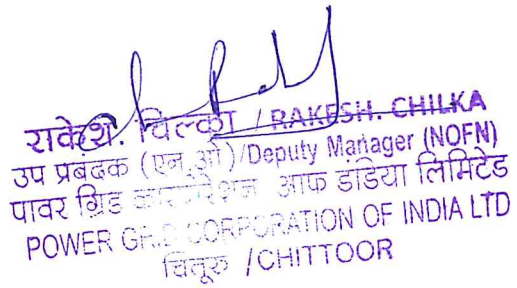 राकेश. चिल्का / RAKESH. CHILKA
उप प्रबंदक (एन.ओ)/Deputy Manager (NOFN)
पावर ग्रिड कारपोरेशन आफ इंडिया लिमिटेड
POWER GRID CORPORATION OF INDIA LTD
चितूरु /CHITTOOR